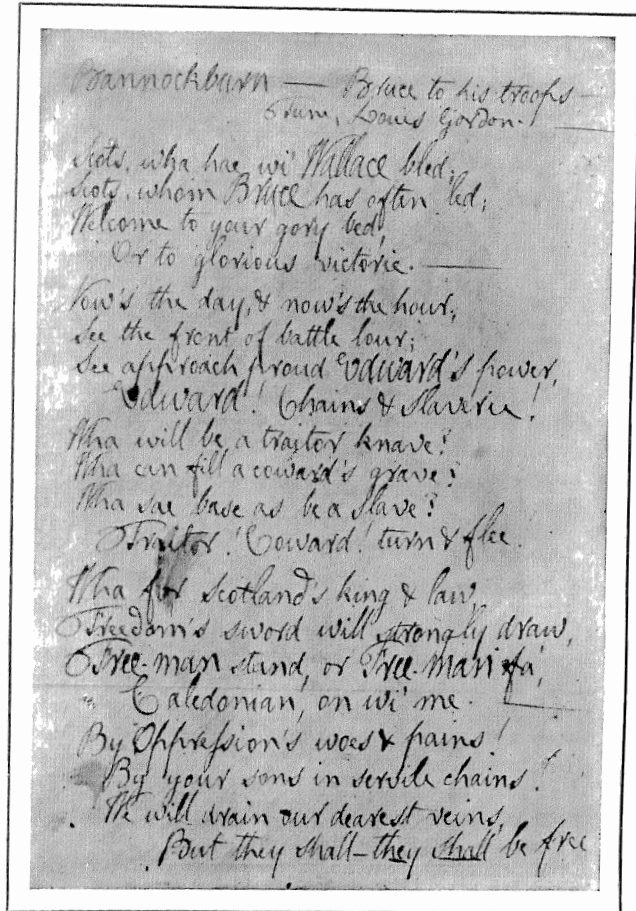 Bannockburn — Bruce to his troops —
Tune, Lewis Gordon.
Scots, wha hae wi' Wallace bled;
Scots, whom Bruce has often led;
Welcome to your gory bed,
Or to glorious victorie. —
Now's the day, & now's the hour;
See the front of battle lour;
See approach proud Edward's power,
Edward! Chains & Slaverie!
Wha will be a traitor knave?
Wha can fill a coward's grave?
Wha sae base as be a slave?
Traitor! Coward! turn & flee.
Wha for Scotland's king & law,
Freedom's sword will strongly draw,
Free-man stand, or Free-man fa',
Caledonian, on wi' me.
By Oppression's woes & pains!
By your sons in servile chains!
We will drain our dearest veins,
But they shall—they shall be free